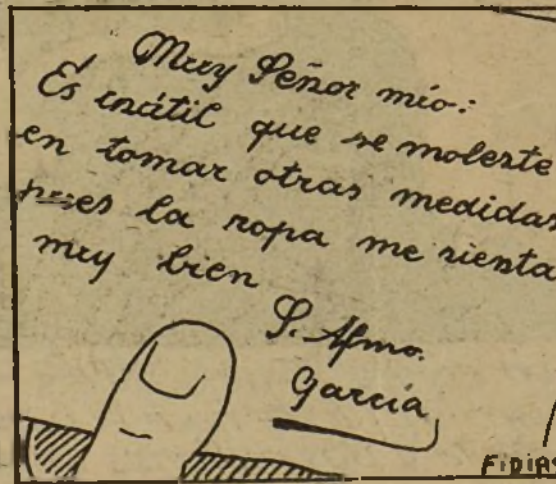 Muy Señor mío:
Es inútil que se moleste
en tomar otras medidas
pues la ropa me sienta
muy bien
S. Afmo.
García
FIDIAS